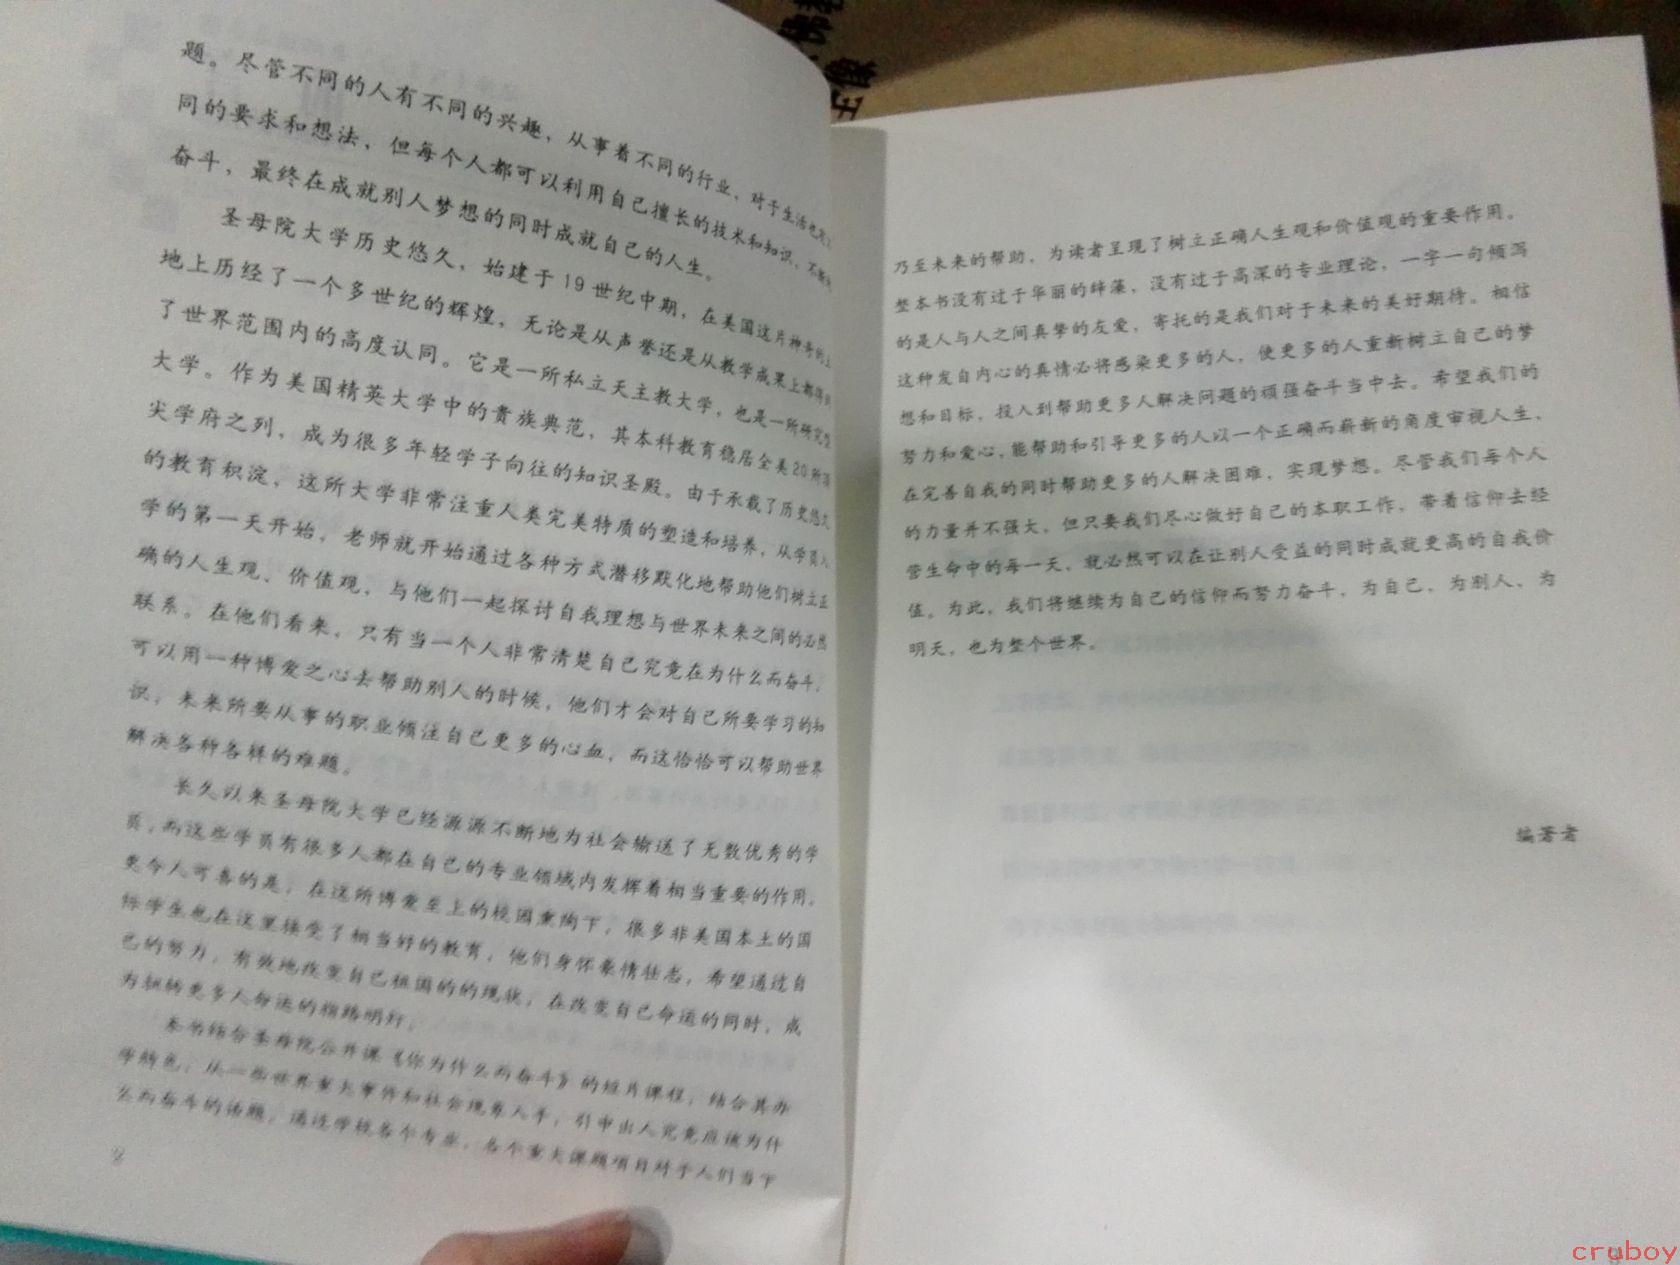 题。尽管不同的人有不同的兴趣，从事着不同的行业，对于生活也有
同的要求和想法，但每个人都可以利用自己擅长的技术和知识，不断
奋斗，最终在成就别人梦想的同时成就自己的人生。
圣母院大学历史悠久，始建于19世纪中期，在美国这片神奇的土
地上历经了一个多世纪的辉煌，无论是从声誉还是从教学成果上都得到
了世界范围内的高度认同。它是一所私立天主教大学，也是一所研究型
大学。作为美国精英大学中的贵族典范，其本科教育稳居全美20所顶
尖学府之列，成为很多年轻学子向往的知识圣殿。由于承载了历史悠久
的教育积淀，这所大学非常注重人类完美特质的塑造和培养，从学员入
学的第一天开始，老师就开始通过各种方式潜移默化地帮助他们树立正
确的人生观、价值观，与他们一起探讨自我理想与世界未来之间的必然
联系。在他们看来，只有当一个人非常清楚自己究竟在为什么而奋斗，
可以用一种博爱之心去帮助别人的时候，他们才会对自己所要学习的知
识，未来所要从事的职业倾注自己更多的心血，而这恰恰可以帮助世界
解决各种各样的难题。
长久以来圣母院大学已经源源不断地为社会输送了无数优秀的学
员，而这些学员有很多人都在自己的专业领域内发挥着相当重要的作用。
更令人可喜的是，在这所博爱至上的校园熏陶下，很多非美国本土的国
际学生也在这里接受了相当好的教育，他们身怀豪情壮志，希望通过自
己的努力，有效地改变自己祖国的的现状，在改变自己命运的同时，成
为扭转更多人命运的指路明灯。
本书结合圣母院公开课《你为什么而奋斗》的短片课程，结合其办
学特色，从一些世界重大事件和社会现象入手，引申出人究竟应该为什
么而奋斗的话题，通过学校各个专业、各个重大课题项目对于人们当下
2
乃至未来的帮助，为读者呈现了树立正确人生观和价值观的重要作用。
整本书没有过于华丽的辞藻，没有过于高深的专业理论，一字一句倾泻
的是人与人之间真挚的友爱，寄托的是我们对于未来的美好期待。相信
这种发自内心的真情必将感染更多的人，使更多的人重新树立自己的梦
想和目标，投入到帮助更多人解决问题的顽强奋斗当中去。希望我们的
努力和爱心，能帮助和引导更多的人以一个正确而崭新的角度审视人生，
在完善自我的同时帮助更多的人解决困难，实现梦想。尽管我们每个人
的力量并不强大，但只要我们尽心做好自己的本职工作，带着信仰去经
营生命中的每一天，就必然可以在让别人受益的同时成就更高的自我价
值。为此，我们将继续为自己的信仰而努力奋斗，为自己，为别人，为
明天，也为整个世界。
编著者
cruboy